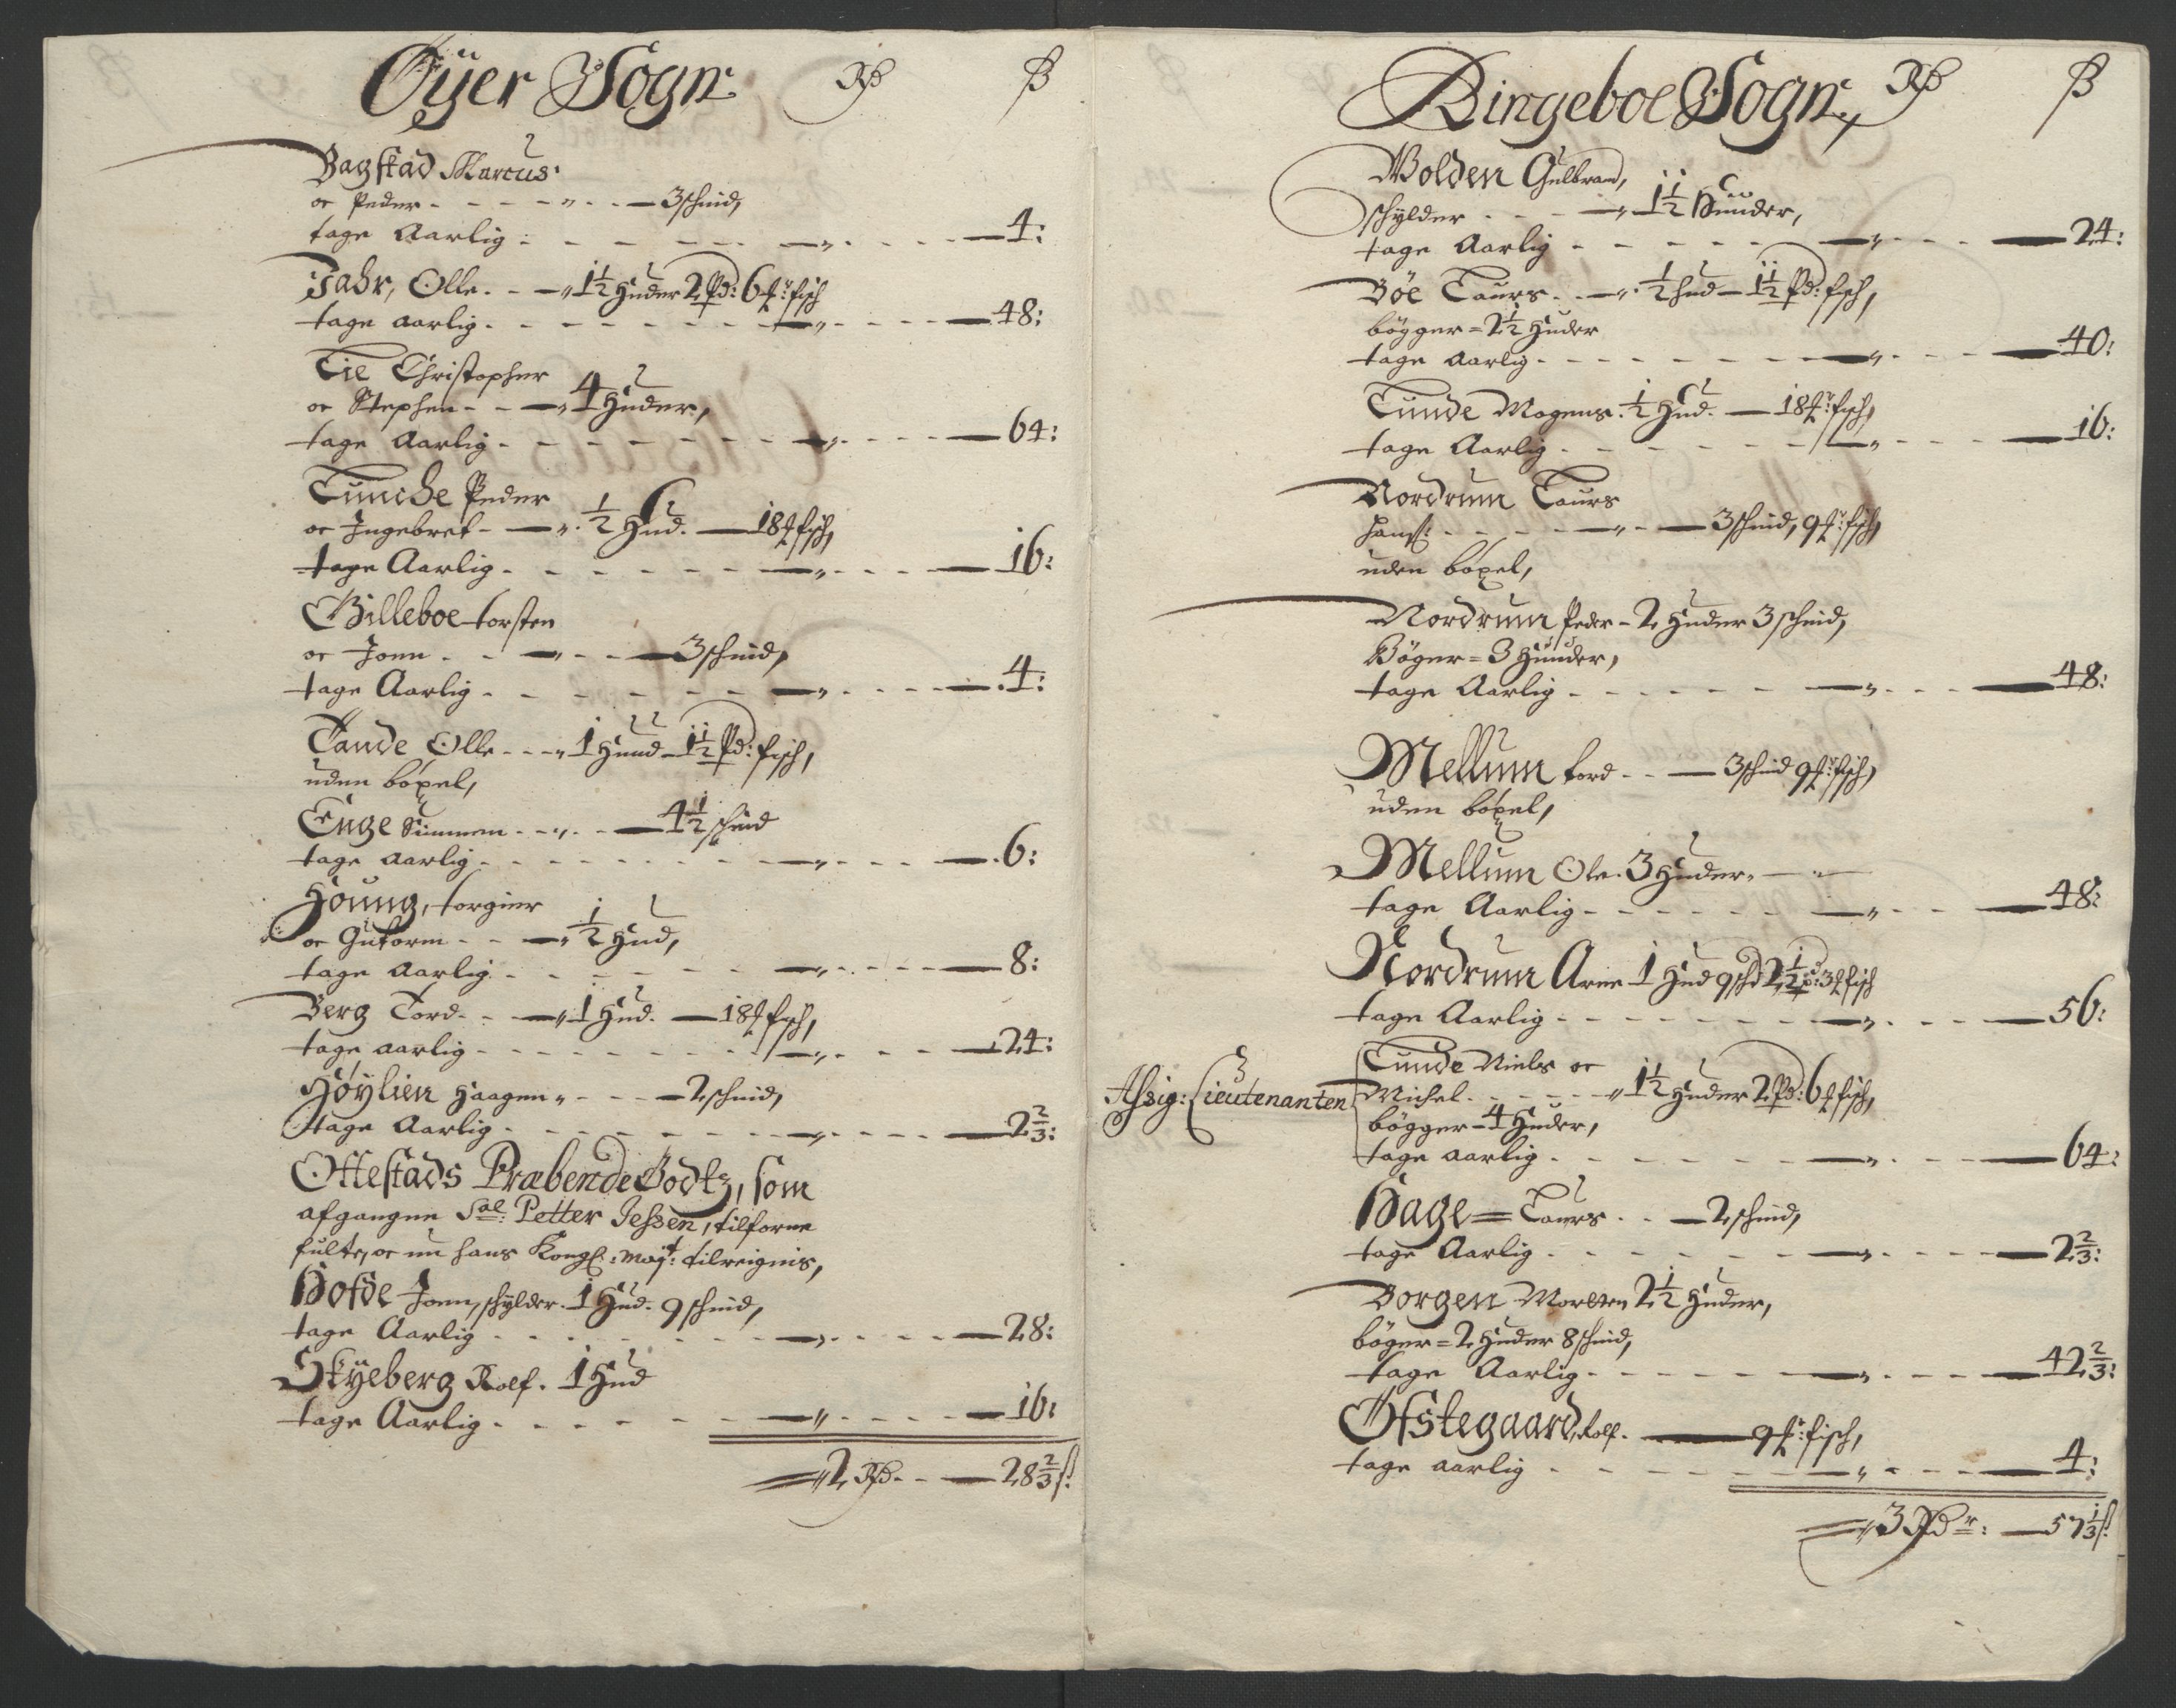 Øÿer Sogn Rd ß
Bagstad Marcus
oc Peder - - - - „ - - 3 schind,
tage Aarlig - - - - - „ - - - 4:
Jahr, Olle - - „ 1½ Huder 2 Pd: 6 ℔r: fisch
tage aarlig - - - - - - „ - - - 48:
Lie Christopher
oc Stephen - - „ 4 Huder,
tage Aarlig - - - - - - „ - - - 64:
Lunche Peder
oc Ingebret - - „ ½ Hud. - 18 ℔ fisch,
tage Aarlig - - - - - - „ - - - 16:
Gilleboe torsten
oc Jonn - - „ - - 3 schind,
tage Aarlig - - - - - - „ - - - 4:
Tande Olle - - - „ 1 Huud - 1½ Pd: fisch,
uden böxel,
Enge Simmen - - „ - 4½ schind
tage aarlig - - - - - - „ - - - 6:
Høung, torgier
oc Gutorm - - „ ½ Hud,
tage aarlig - - - - - - „ - - - 8:
Berg Tord - - „ 1 Hud. - 18 ℔ fisch,
tage aarlig - - - - - - „ - - - 24:
Høylien Haagen „ - - - 2 schind,
tage Aarlig - - - - - - „ - - - 2⅔:
Ottestads Præbende Godtz, som
afgangne Sal: Petter Jessen, tilforne
fulte, oc nu hans Kongl: Mayt: tilreignis,
Hofde Jonn, schylder. 1 Hud. 9 schind,
tage Aarlig - - - - - - „ - - - 28:
Skÿeberg Rolf. 1 Hud
tage Aarlig - - - - - - „ - - - 16:
„ 2 Rd - - 28⅔ ß:
Ringeboe Sogn, Rd ß
Wolden Gulbrand,
schylder - - - „ 1½ Huuder,
tage Aarlig - - - - - - „ - - - 24:
Böe Laurs - - „ ½ hud - 1½ Pd: fisch,
bögger = 2½ Huder
tage aarlig - - - - - - „ - - - 40:
Tunde Mogens. ½ Hud. - 18 ℔r: fisch,
tage Aarlig - - - - - - „ - - - 16:
Nordrum Laurs
Hanß: - - - - „ - - 3 schind, 9 ℔r: fisch,
uden böxel,
Nordrum Peder - 2 Huder 3 schind,
Böger = 3 Huuder,
tage Aarlig - - - - - - „ - - - 48:
Mellum tord - - - 3 schind 9 ℔r: fisch,
uden böxel,
Mellum Ole. 3 Huder.
tage Aarlig - - - - - - „ - - - 48:
Nordrum Arne 1 Hud 9 schd 2½ p: 3 ℔ fisch
tage Aarlig - - - - - - „ - - - 56:
Assig: Lieutenanten
Tunde Niels oc
Michel - - - - „ 1½ Huder 2 Pd: 6 ℔ fisch,
bögger - 4 Huder,
tage aarlig - - - - - - „ - - - 64:
Hage = Laurs - - - 2 schind,
tage Aarlig - - - - - - „ - - - 2⅔:
Borgen Morten 2½ Huder,
böger = 2 Huder 8 schind,
tage Aarlig - - - - - - „ - - - 42⅔:
Øfstegaard, Rolf. - 9 ℔r: fisch,
tage aarlig - - - - - - „ - - - 4:
„ 3 Rdr: - 57⅓ ß: